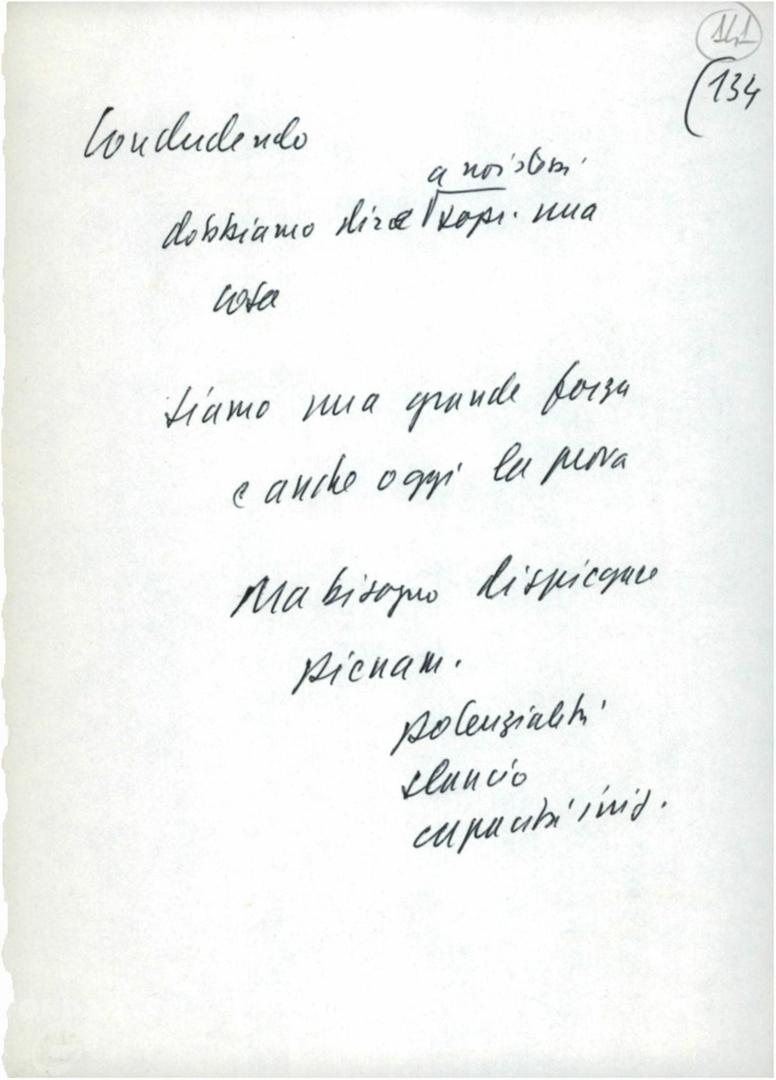 141
(134
Concludendo
a noi stessi
dobbiamo dire sopr. una
cosa
siamo una grande forza
e anche oggi la prova
Ma bisogna dispiegare
pienam.
potenzialità
slancio
capacità iniz.